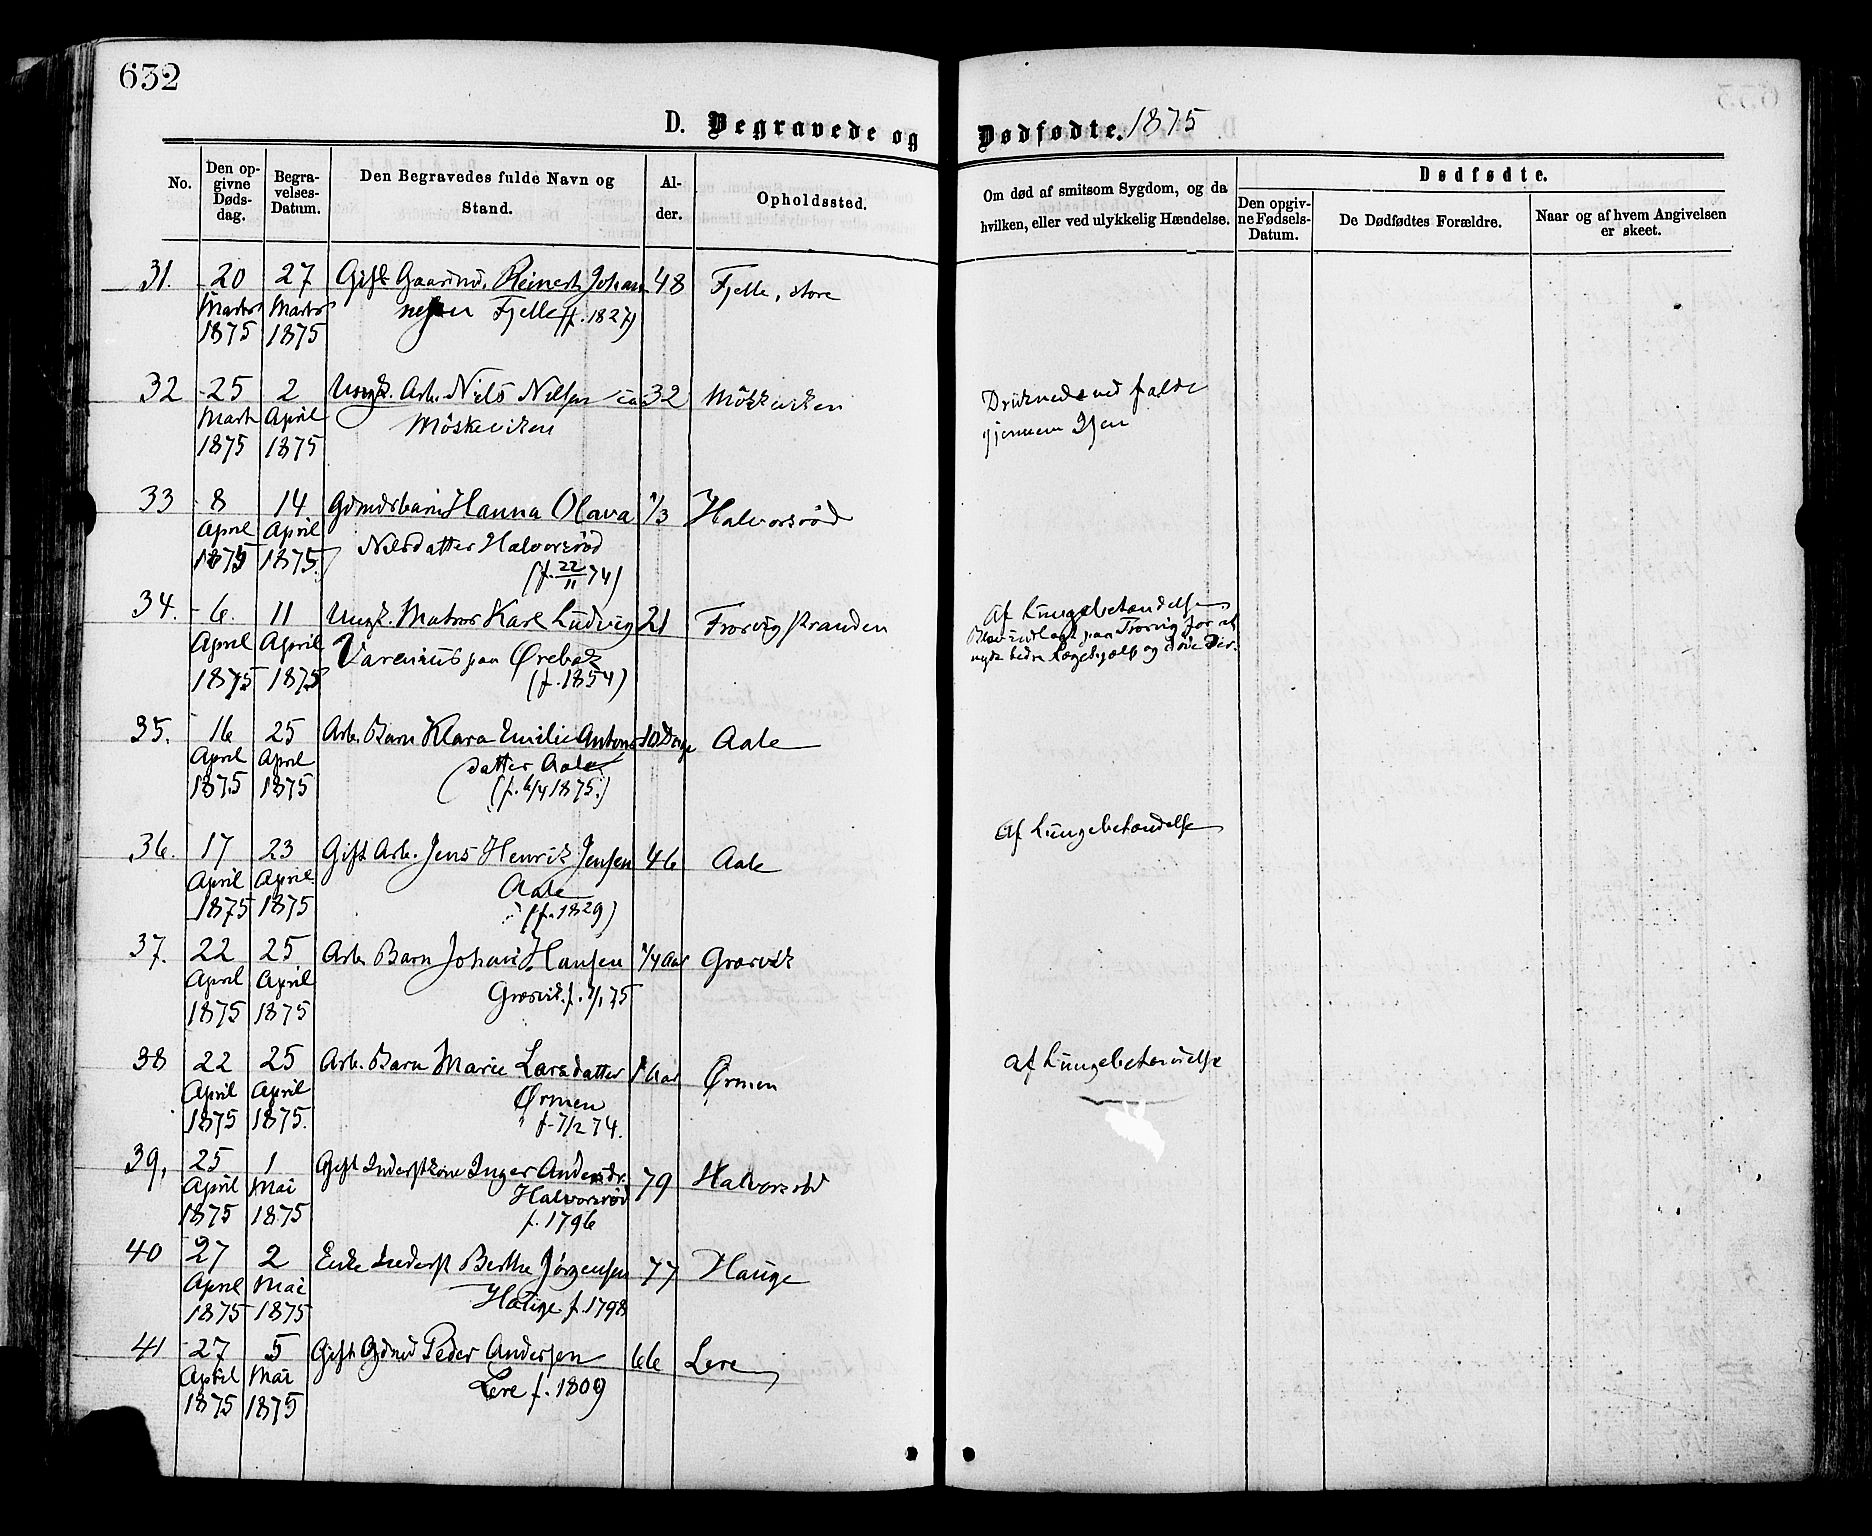 632
D. Begravede og Dødfødte. 1875
No.
Den opgivne Dødsdag.
Begravelses-Datum.
Den Begravedes fulde Navn og Stand.
Alder.
Opholdssted.
Om død af smitsom Sygdom, og da hvilken, eller ved ulykkelig Hændelse.
Dødfødte.
Den opgivne Fødsels-Datum.
De Dødfødtes Forældre.
Naar og af hvem Angivelsen er skeet.
31. 20 27 Gift Gaardmd. Reinert Johan- 48 Fjelle, store
Marts Marts nesen Fjelle (f. 1827)
1875 1875
32 25 2 Ungk. Arb. Niels Nilsen ca 32 Møskeviken Druknede ved falde
Marts April Møskeviken gjennem Isen
1875 1875
33 8 14 Gdmdsbarn Hanna Olava 1/3 Halvorsrød
April April Nilsdatter Halvorsrød
1875 1875. (f. 22/11 74)
34. 6 11 Ungk. Matros Karl Ludvig 21 Trosvigstranden Af Lungebetændelse,
April April Varenius paa Ørebæk paa Trosvig for at
1875 1875 (f. 1854) nyde bedre Lægehjælp og døde der.
35. 16 25 Arb. Barn Klara Emilie Antons 10 Dage Aale
April April datter Aale
1875 1875 (f. 6/4 1875.)
36. 17 23 Gift Arb. Jens Henrik Jensen 46 Aale Af Lungebetændelse
April April. Aale
1875 1875 (f. 1829)
37. 22 25 Arb. Barn Johan Hansen 1/4 Aar Græsvik
April April Græsvik. f. /1 75
1875 1875
38 22 25 Arb. Barn Marie Larsdatter 1 Aar Ørmen af Lungebetændelse
April April Ørmen
1875 1875. f. 7/2 74.
39, 25 1 Gift Inderstkone Inger Andersdr. 79 Halvorsrød
April Mai Halvorsrød
1875 1875 f. 1796
40 27 2 Enke Inderst Berthe Jørgensen 77 Hauge
April Mai Hauge f. 1798
1875 1875
41 27 5 Gift Gdmd Peder Andersen 66 Lere
April Mai Lere f. 1809
1875 1875